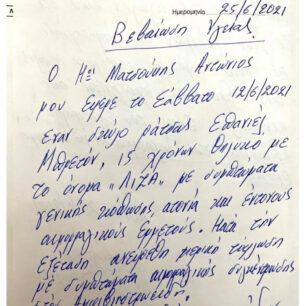 Ημερομηνία 25/6/2021
Βεβαίωση Υγείας
Ο Ηξ Ματσούκης Αντώνιος
μου έφερε το Σάββατο 12/6/2021
έναν σκύλο ράτσας Επανιέλ
Μπρετόν, 15 χρόνων θηλυκό με
το όνομα "ΛΙΖΑ" με συμπτώματα
γενικής κατάπτωσης, ατονία και έντονους
αιμορραγικούς εμετούς. Κατά την
εξέταση ανευρέθη
με συμπτώματα αιμορραγικής